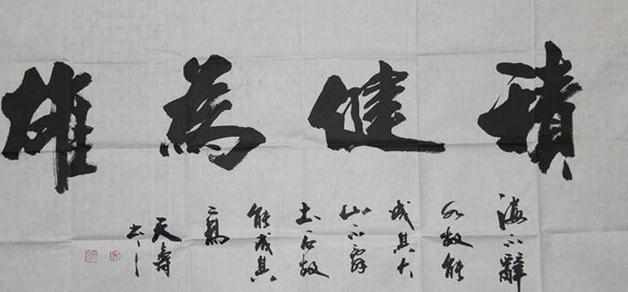 積健為雄
海不辭
水故能
成其大
山不辭
土石故
能成其
高
天壽